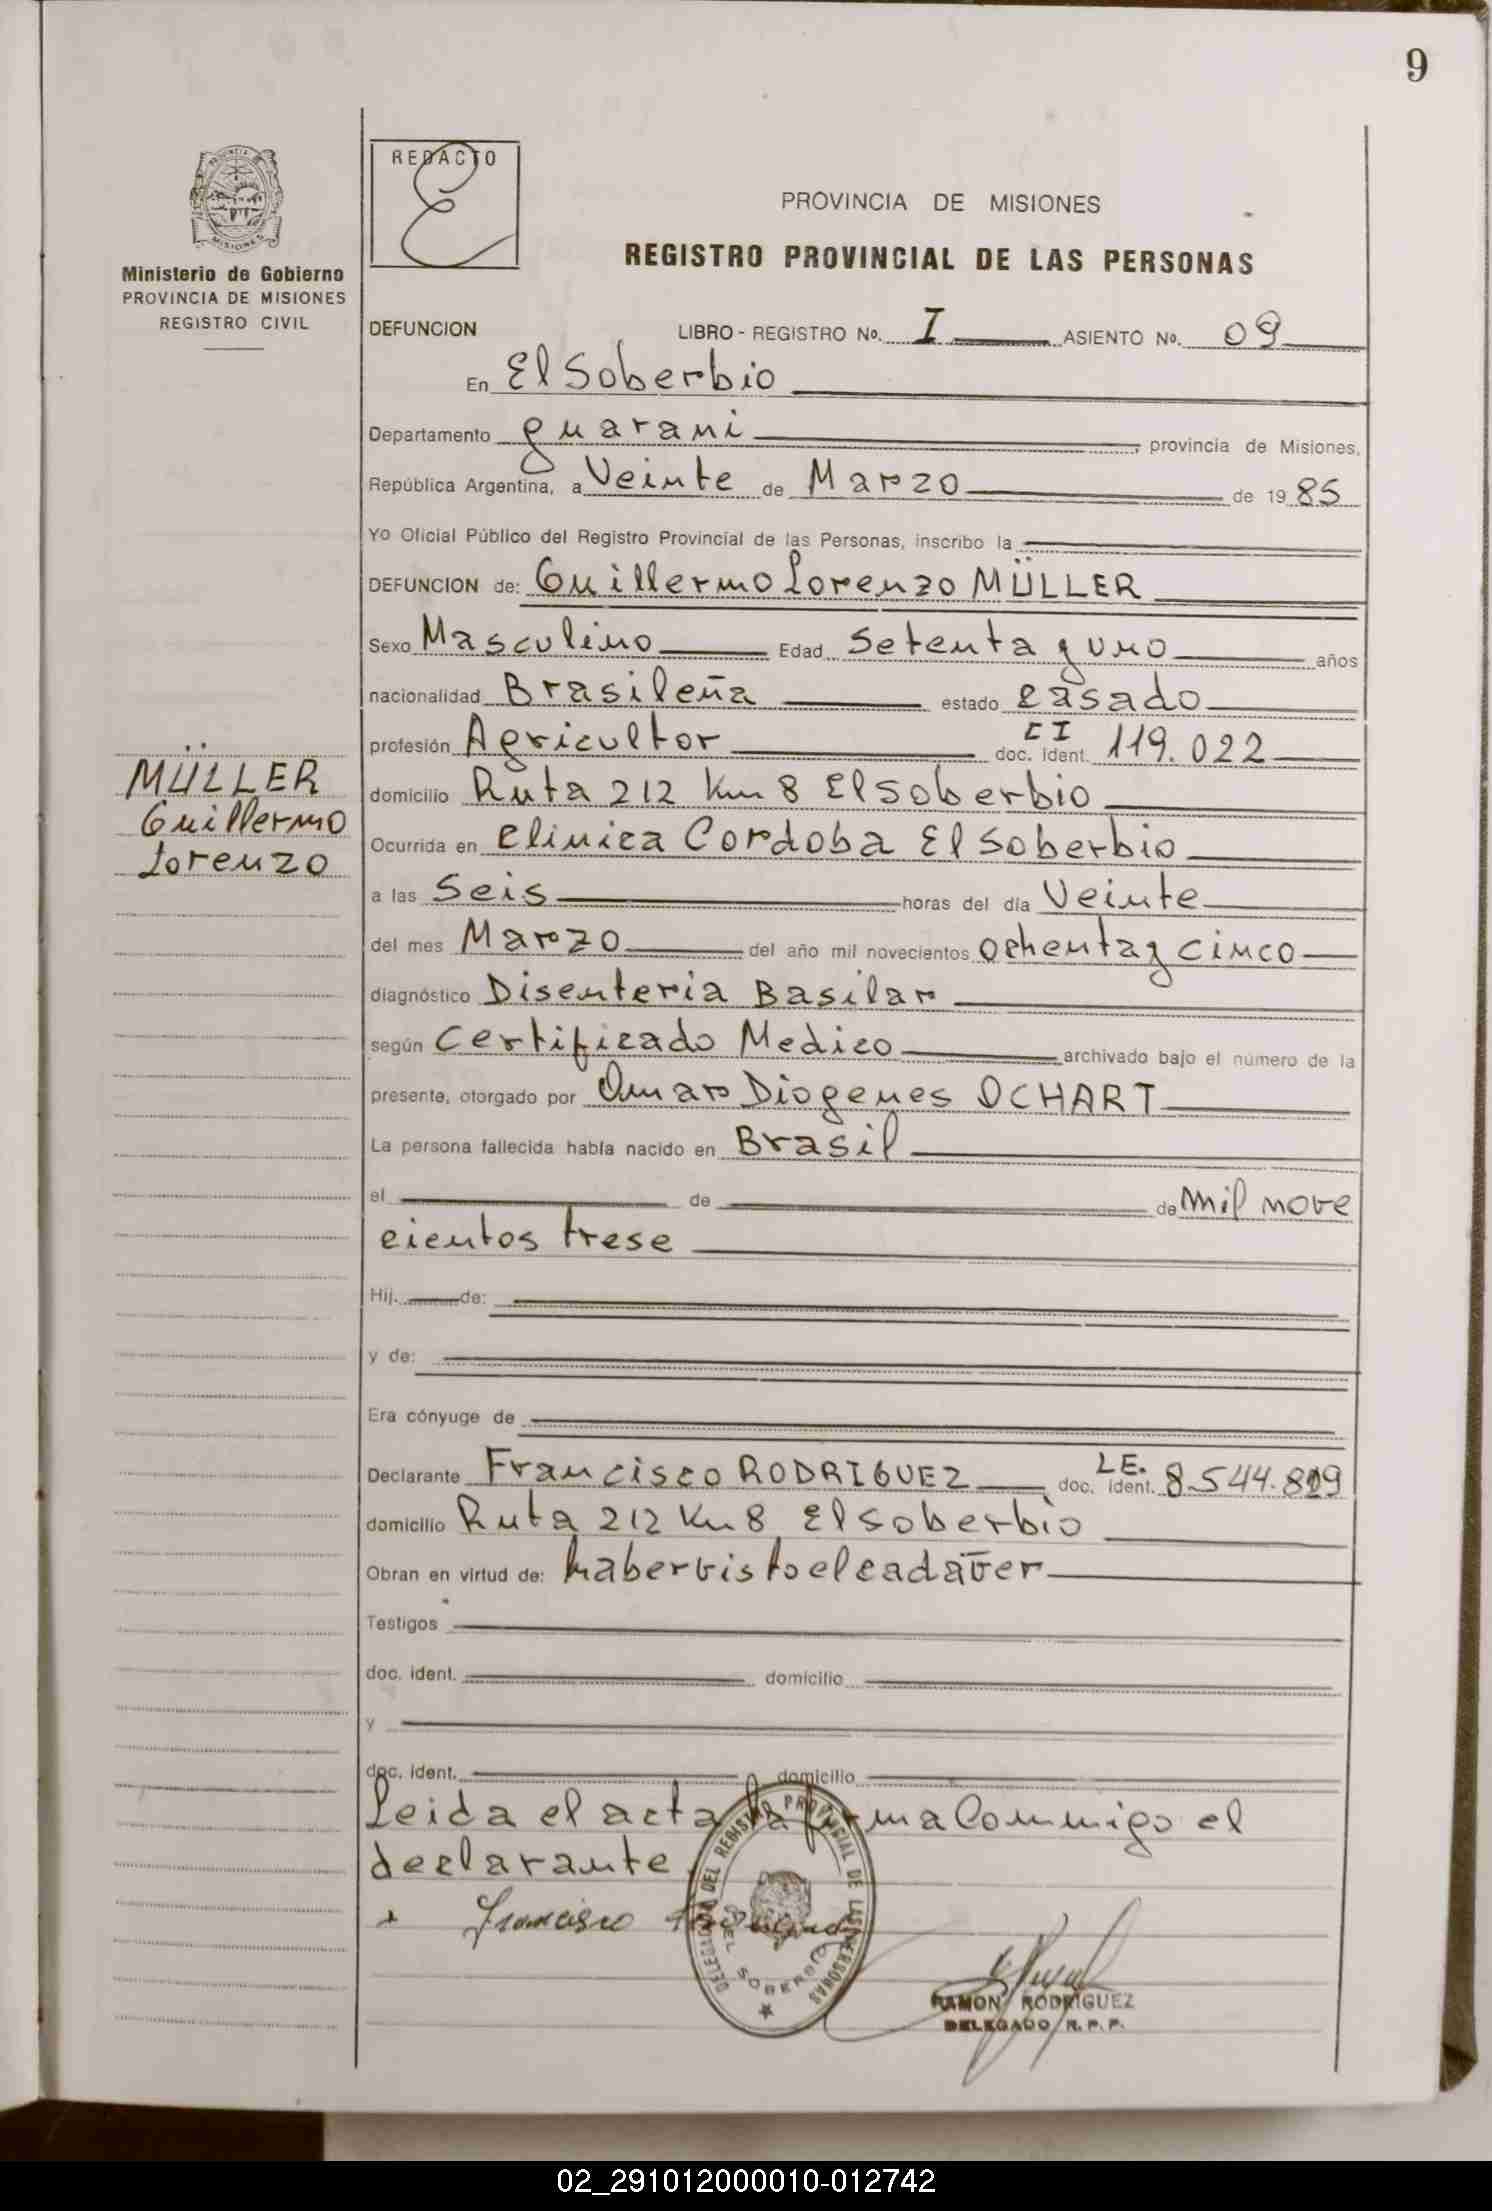 9
REDACTO
PROVINCIA DE MISIONES
REGISTRO PROVINCIAL DE LAS PERSONAS
Ministerio de Gobierno
PROVINCIA DE MISIONES
REGISTRO CIVIL
DEFUNCION LIBRO - REGISTRO No. I ASIENTO No. 09
En El Soberbio
Departamento guarani, provincia de Misiones,
República Argentina, a Veinte de Marzo de 1985
Yo Oficial Público del Registro Provincial de las Personas, inscribo la
DEFUNCION de: Guillermo Lorenzo MÜLLER
Sexo Masculino Edad Setenta y uno años
nacionalidad Brasileña estado casado
profesión Agricultor doc. ident. CI 119.022
MÜLLER
Guillermo
Lorenzo
domicilio Ruta 212 Km 8 El Soberbio
Ocurrida en Clinica Cordoba El Soberbio
a las Seis horas del día Veinte
del mes Marzo del año mil novecientos ochenta y cinco
diagnóstico Disenteria Basilar
según Certificado Medico archivado bajo el número de la
presente, otorgado por Omar Diogenes OCHART
La persona fallecida había nacido en Brasil
el de de mil nove
cientos trese
Hij. de:
y de:
Era cónyuge de
Declarante Francisco RODRIGUEZ doc. ident. L.E. 8.544.819
domicilio Ruta 212 Km 8 El Soberbio
Obran en virtud de: haber visto el cadáver
Testigos
doc. ident. domicilio
y
doc. ident. domicilio
Leida el acta la firma Conmigo el
declarante
Francisco
DELEGACION DEL REGISTRO PROVINCIAL DE LAS PERSONAS
EL SOBERBIO
RAMON RODRIGUEZ
DELEGADO R. P. P.
02_291012000010-012742